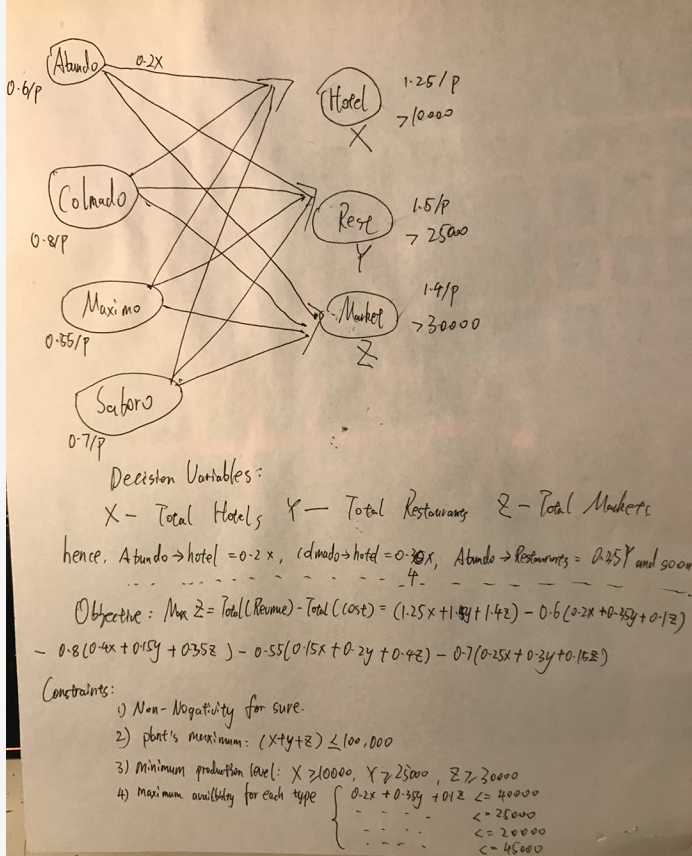 Abundo
0.2X
0.6/p
Hotel
1.25/p
>10000
X
Colmado
0.8/p
Rest
1.5/p
> 25000
Y
Maximo
0.55/p
Market
1.4/p
>30000
Z
Saboro
0.7/p
Decision Variables:
X – Total Hotels Y — Total Restaurants Z – Total Markets
hence, Abundo → hotel = 0.2x, Colmado → hotel = 0.4x, Abundo → Restaurants = 0.35Y and so on
Objective: Max Z = Total(Revnue) - Total(cost) = (1.25x + 1.5y + 1.4z) - 0.6(0.2x + 0.35y + 0.1z)
- 0.8(0.4x + 0.15y + 0.35z) - 0.55(0.15x + 0.2y + 0.4z) - 0.7(0.25x + 0.3y + 0.15z)
Constraints:
1) Non-Nogativity for sure.
2) plant's maximum: (x+y+z) ≤ 100,000
3) Minimum production level: X ≥ 10000, Y ≥ 25000, Z ≥ 30000
4) Maximum availbility for each type { 0.2x + 0.35y + 0.1z <= 40000
- - - - <= 25000
- - - - <= 20000
- - - - <= 45000